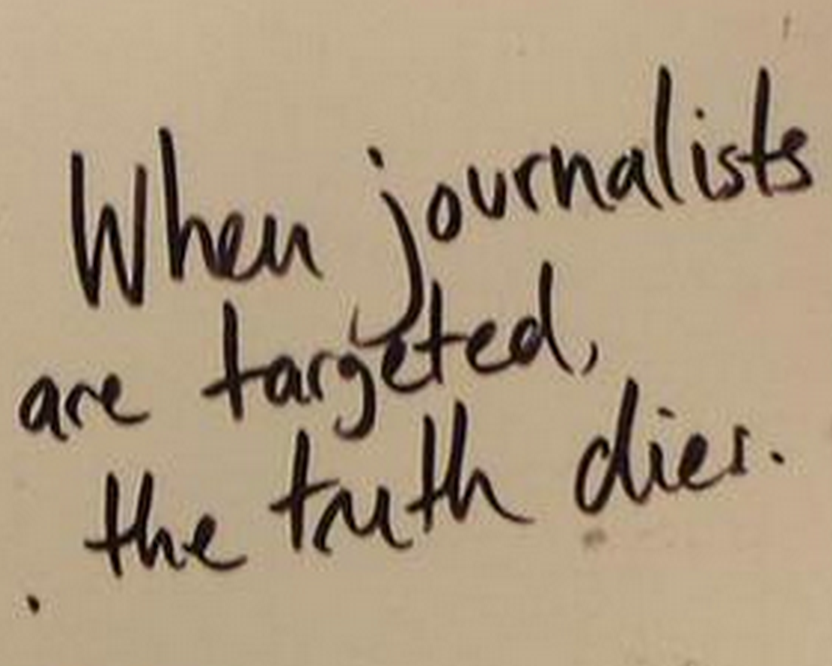 When journalists
are targeted,
the truth dies.